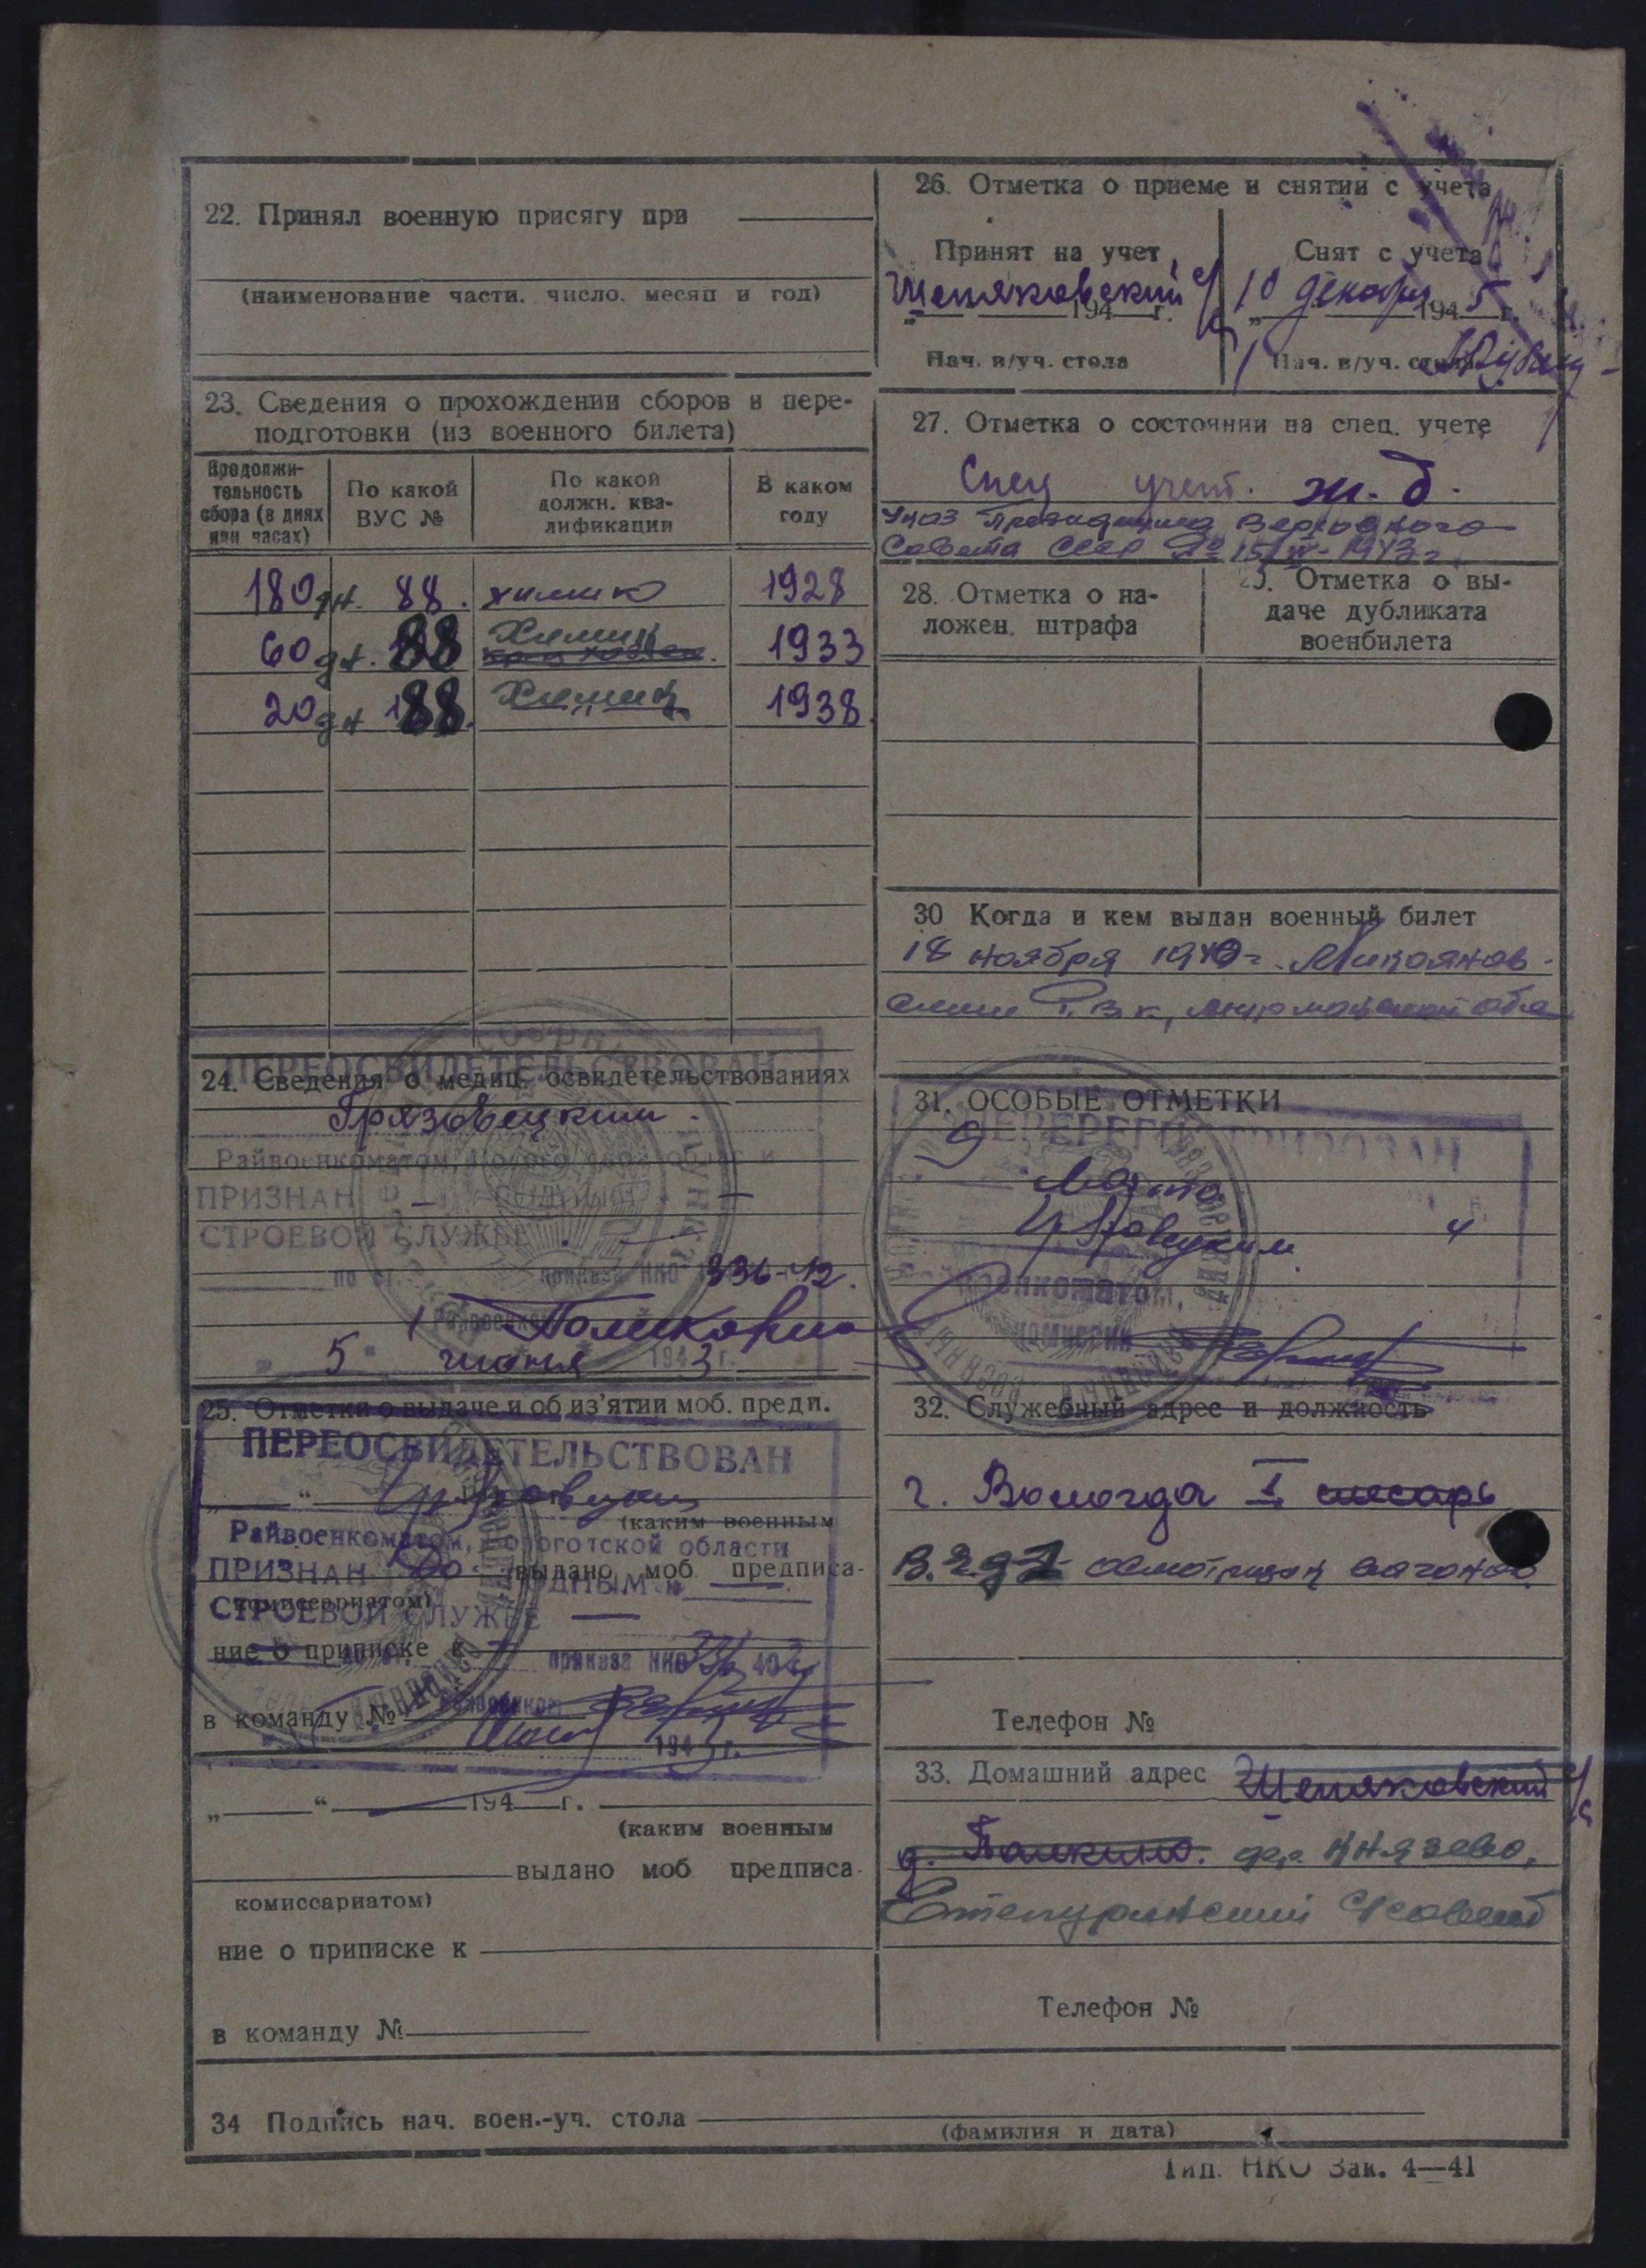 22. Принял военную присягу при
(наименование части, число, месяц и год)
23. Сведения о прохождении сборов и пере-
подготовки (из военного билета)
Продолжи-
тельность
сбора (в днях
или часах)
По какой
ВУС №
По какой
должн. ква-
лификации
В каком
году
180 дн. 88. химик 1928
60 дн. 88 Химик 1933
20 дн 188. Химик 1938.
ПЕРЕОСВИДЕТЕЛЬСТВОВАН
24. Сведения о медиц. освидетельствованиях
Грязовецким
Райвоенкоматом,
ПРИЗНАН —
СТРОЕВОЙ СЛУЖБЕ
по ст. приказа НКО 336-42.
Райвоенком
„ 5 “ июня 1943 г.
25. Отметки о выдаче и об из'ятии моб. предп.
ПЕРЕОСВИДЕТЕЛЬСТВОВАН
(каким военным
Райвоенкоматом, Вологотской области
ПРИЗНАН
выдано моб предписа-
комиссариатом)
СТРОЕВОЙ СЛУЖБЕ —
ние о приписке к
приказа НКО
Райвоенком
в команду №
194 г.
„ “ 194 г.
(каким военным
выдано моб предписа-
комиссариатом)
ние о приписке к
в команду №
26. Отметка о приеме и снятии с учета
Принят на учет
Щепяковский с/с
„ 194 г.
Нач. в/уч. стола
Снят с учета
„ 10 декабря 1945 г.
Нач. в/уч. стола
27. Отметка о состоянии на спец. учете
Спец учет. ж.д.
Указ Президиума Верховного
Совета СССР от 15/IV-1943 г.
28. Отметка о на-
ложен. штрафа
29. Отметка о вы-
даче дубликата
военбилета
30 Когда и кем выдан военный билет
18 ноября 1940 г. Микоянов-
ским РВК, Мурманской обл
31. ОСОБЫЕ ОТМЕТКИ
ПЕРЕРЕГИСТРИРОВАН
9 Марта
Грязовецким
Райвоенкоматом,
комиссии
32. Служебный адрес и должность
г. Вологда I слесарь
В.Э.Д.1 осмотрщик вагонов
Телефон №
33. Домашний адрес Щепяковский с/с
д. Панкино. дер. Князево,
Степуринский с/совет
Телефон №
34 Подпись нач. воен.-уч. стола
(фамилия и дата)
Тип. НКО Зак. 4—41